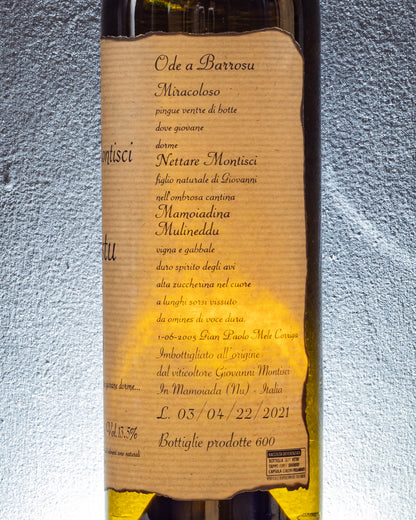 Ode a Barrosu
Miracoloso
pingue ventre di botte
dove giovane
dorme
Nettare Montisci
figlio naturale di Giovanni
nell'ombrosa cantina
Mamoiadina
Mulineddu
vigna e gabbale
duro spirito degli avi
alta zuccherina nel cuore
a lunghi sorsi vissuto
da omines di voce dura.
1-06-2005 Gian Paolo Mele Corriga
Imbottigliato all'origine
dal viticoltore Giovanni Montisci
In Mamoiada (Nu) - Italia
L. 03/04/22/2021
Bottiglie prodotte 600
ontisci
tu
dorme...
Vol.13.5%